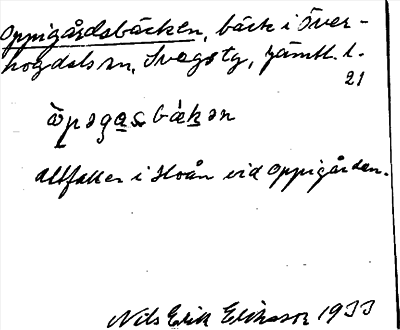 Oppigårdsbäcken, bäck i Över-
hogdals sn, Svegs tg, Jämtl. l.
21
òpəgasbäkən
Utfaller i Hoån vid Oppigården.
Nils Erik Eriksson 1933